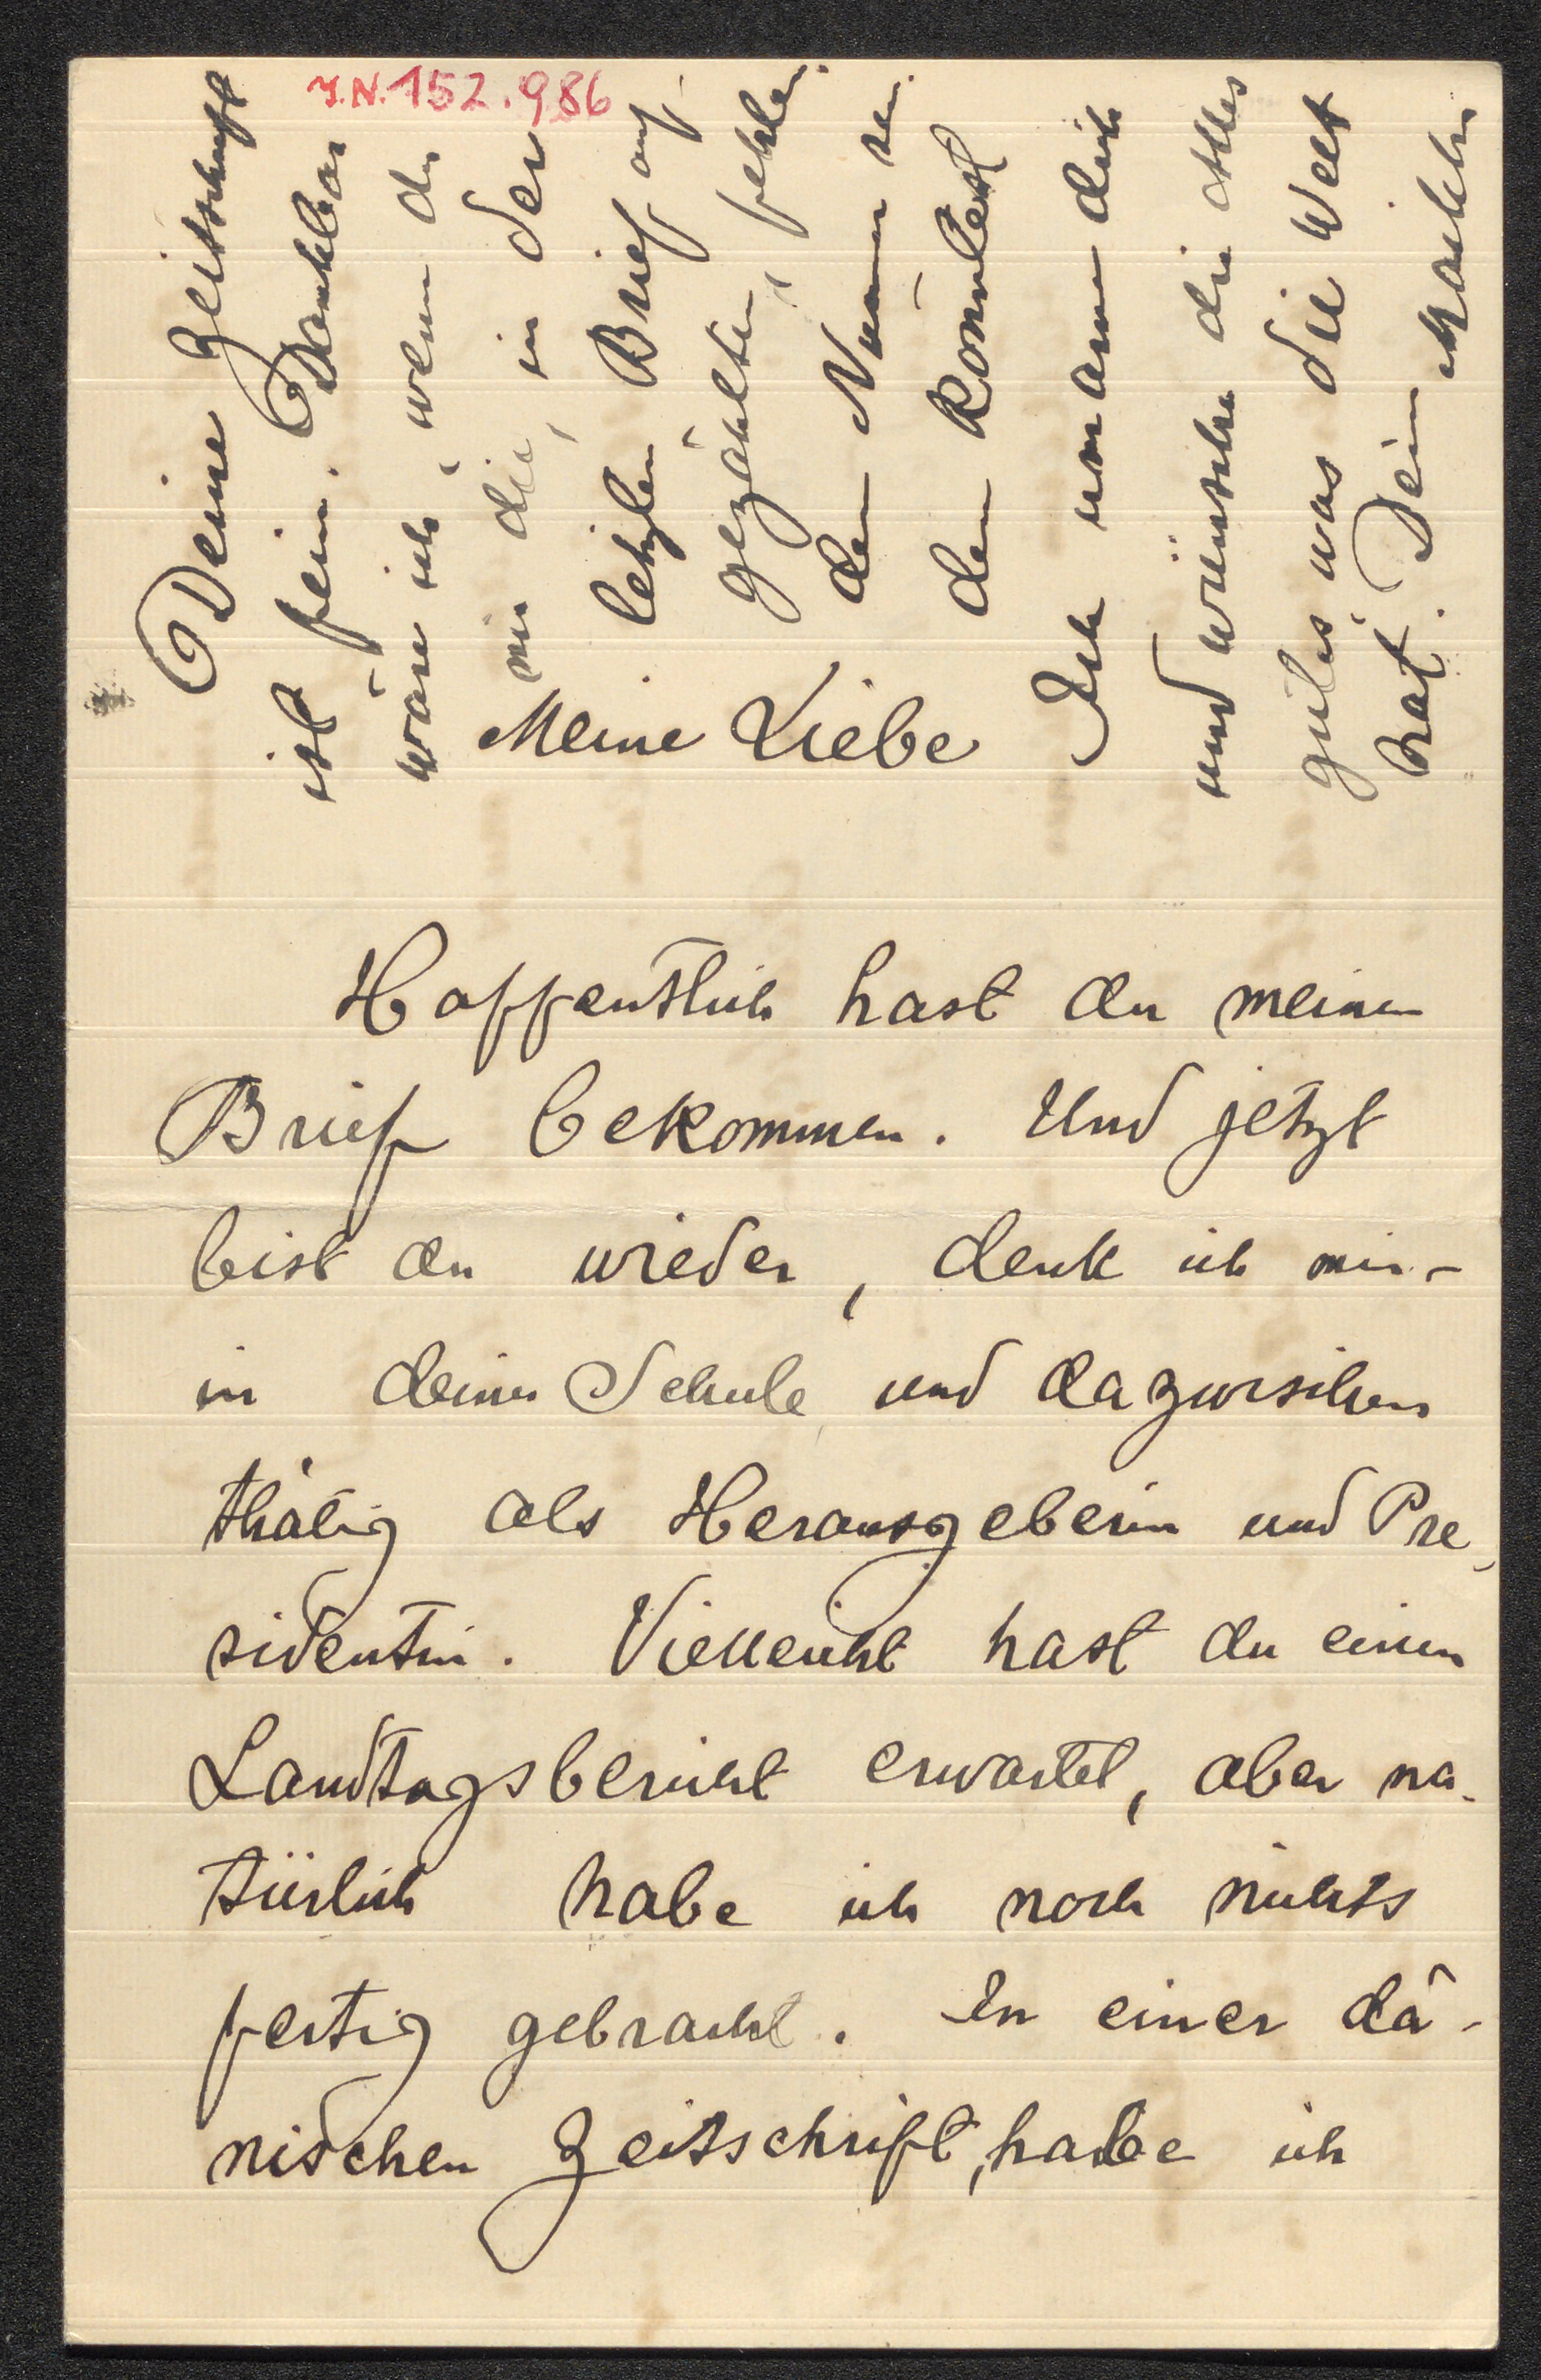 J.N. 152.986
Meine Liebe
Hoffentlich hast du meinen
Brief bekommen. Und jetzt
bist du wieder, denk ich mir -
in deiner Schule und dazwischen
thätig als Herausgeberin und Pre-
sidentin. Vielleicht hast du einen
Landtagsbericht erwartet, aber na-
türlich habe ich noch nichts
fertig gebracht. In einer dä-
nischen Zeitschrift, habe ich
Deine Zeitschrift
ist fein. Dankbar
wäre ich, wenn du
mir die, in der
letzten Brief auf-
gezählten, fehlen
den Nummern sen
den könntest
Ich umarme dich
und wünsche dir alles
gutes was die Welt
hat. Dein